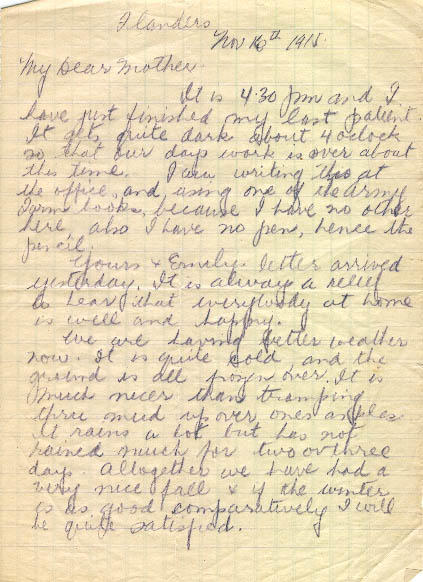 Flanders
Nov 16th 1915.
My Dear Mother.
It is 4.30 pm and I
have just finished my last patient.
It gets quite dark about 4 oclock
so that our days work is over about
this time. I am writing this at
the office, and using one of the army
Form books, because I have no other
here, also I have no pen, hence the
pencil.
Yours & Emilys letter arrived
yesterday. It is always a relief
to hear that everybody at home
is well and happy.
We are having better weather
now. It is quite cold and the
ground is all frozen over. It is
much nicer than tramping
thru mud up over ones ankles
It rains a lot but has not
rained much for two or three
days. Altogether we have had a
very nice fall & if the winter
is as good comparatively I will
be quite satisfied.